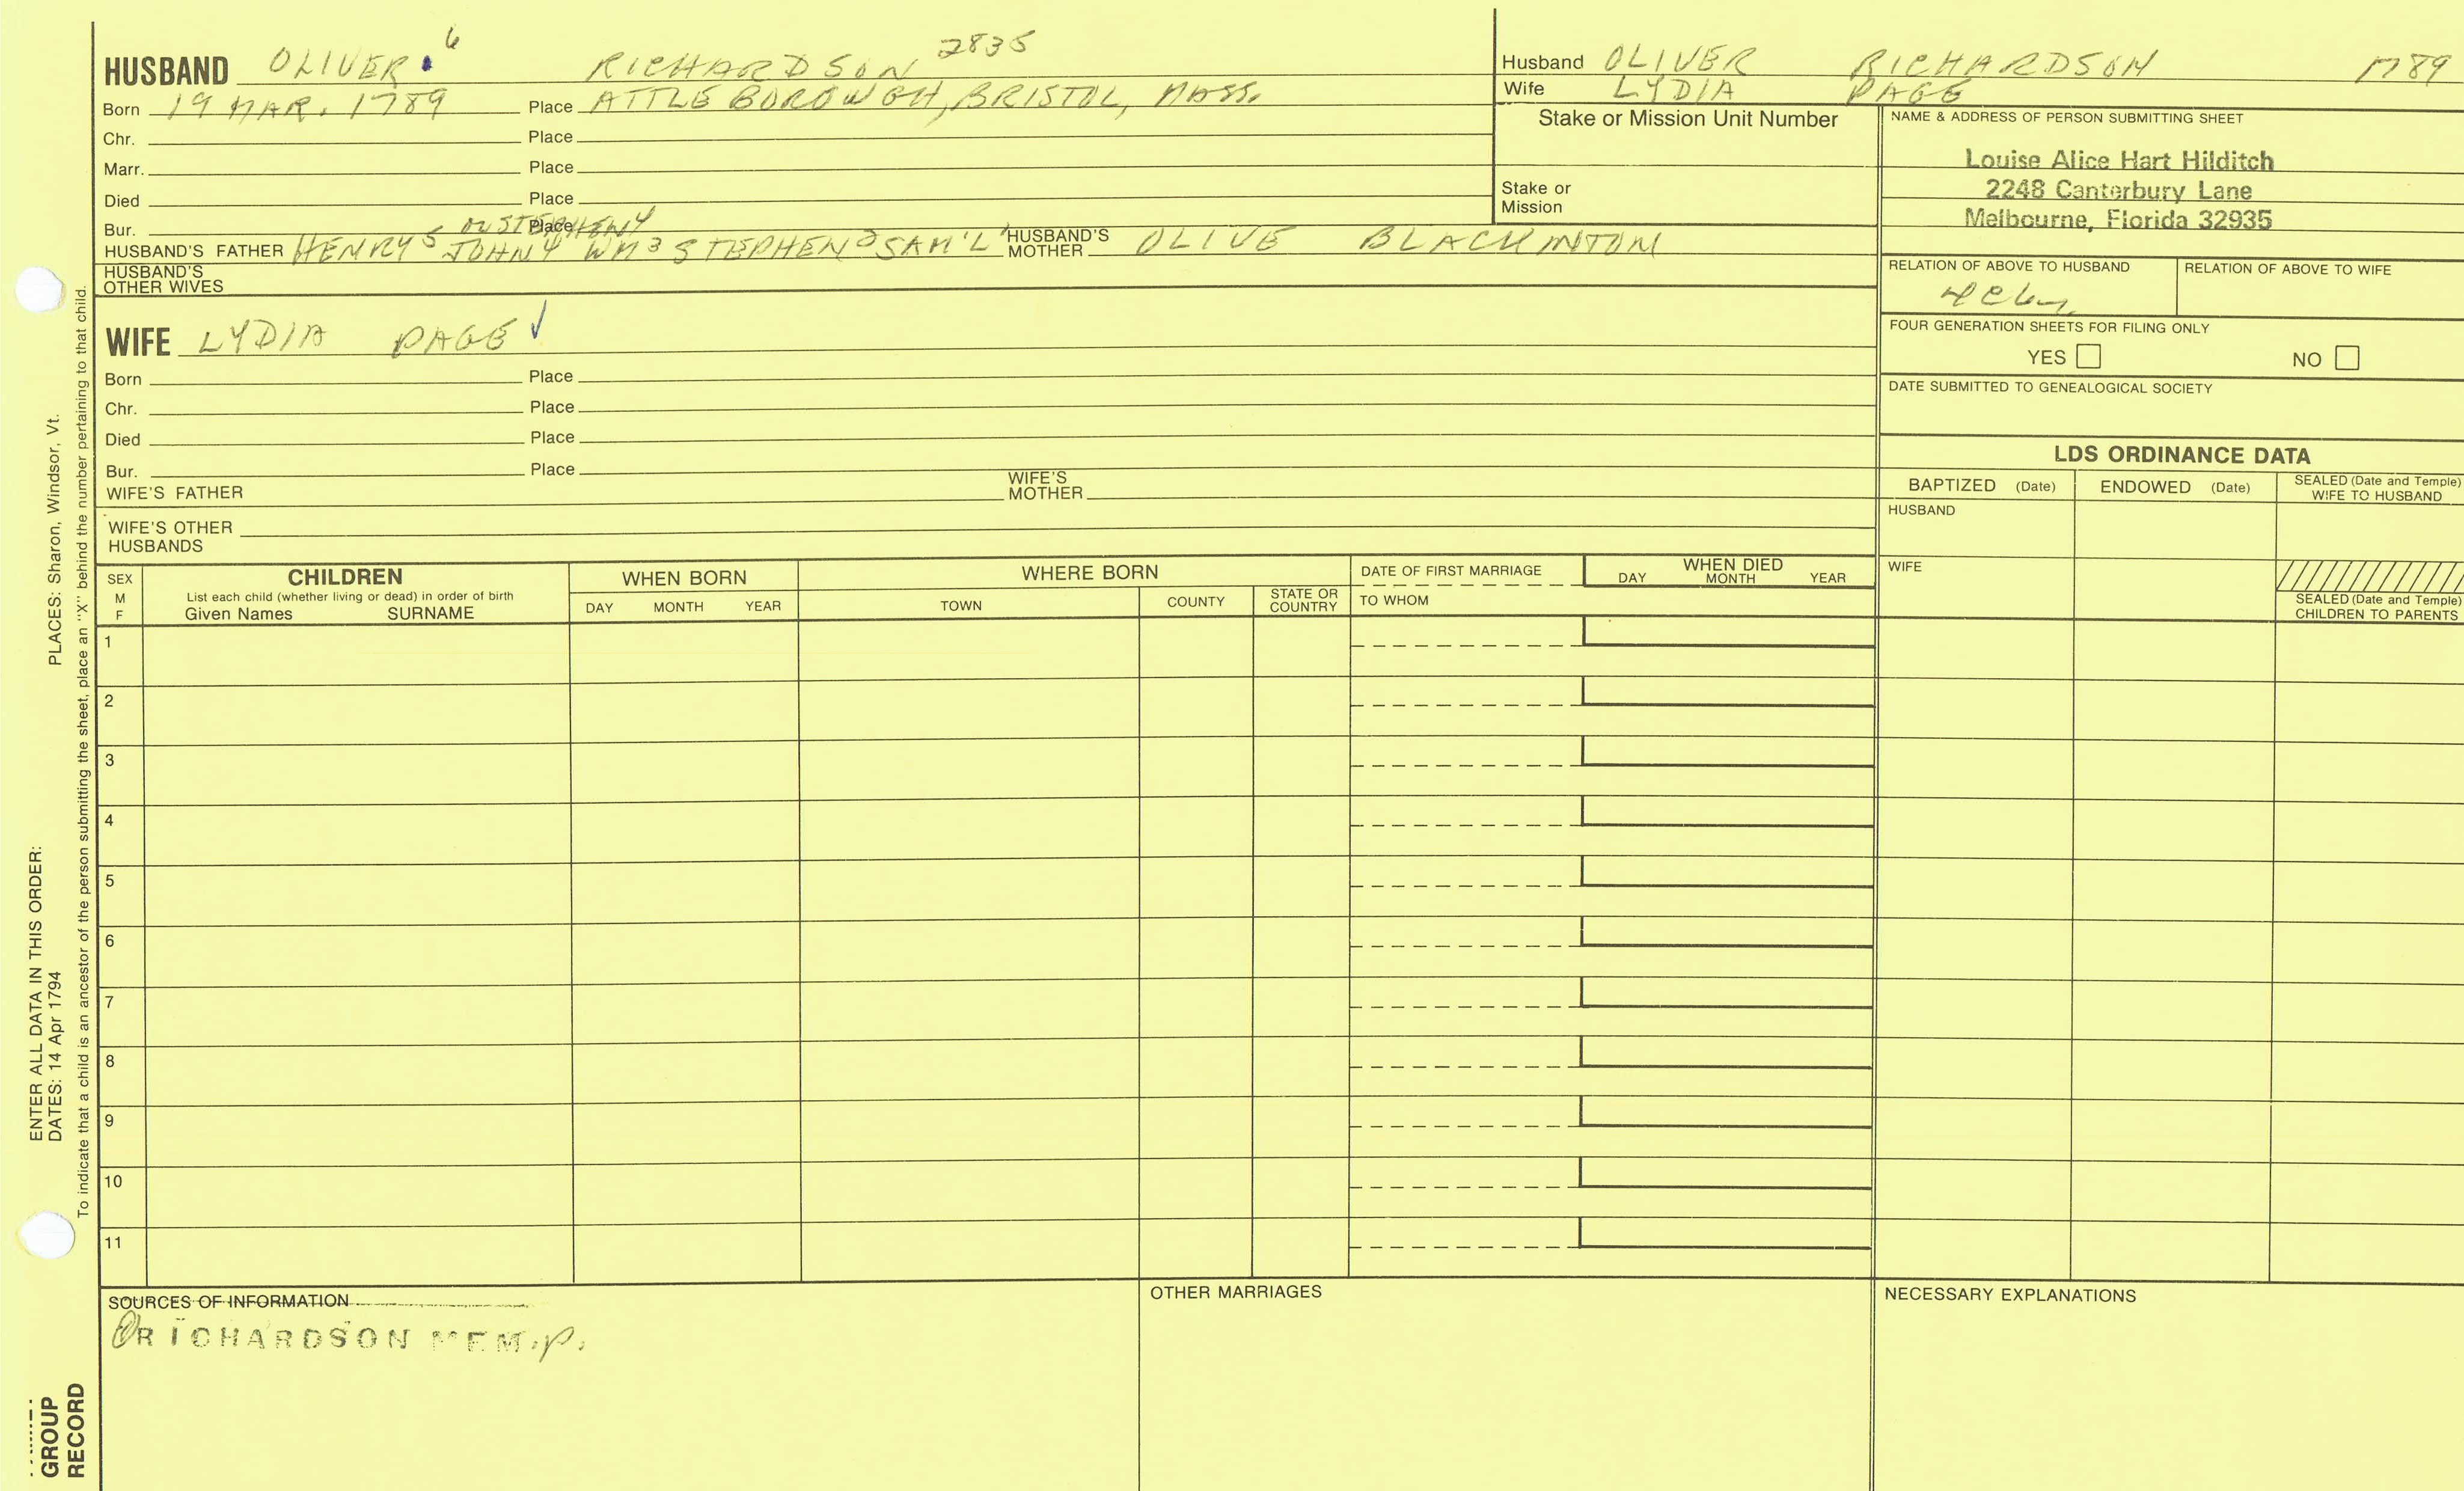 HUSBAND OLIVER 6 RICHARDSON 2835
Born 19 MAR. 1789 Place ATTLEBOROUGH, BRISTOL, MASS.
Chr. Place
Marr. Place
Died Place
Bur. Place OR STEPHEN4
HUSBAND'S FATHER HENRY5 JOHN4 WM3 STEPHEN2 SAM'L1 HUSBAND'S MOTHER OLIVE BLACKINTON
HUSBAND'S OTHER WIVES
WIFE LYDIA PAGE ✓
Born Place
Chr. Place
Died Place
Bur. Place
WIFE'S FATHER WIFE'S MOTHER
WIFE'S OTHER HUSBANDS
Husband OLIVER RICHARDSON 1789
Wife LYDIA PAGE
Stake or Mission Unit Number
Stake or Mission
NAME & ADDRESS OF PERSON SUBMITTING SHEET
Louise Alice Hart Hilditch
2248 Canterbury Lane
Melbourne, Florida 32935
RELATION OF ABOVE TO HUSBAND RELATION OF ABOVE TO WIFE
FOUR GENERATION SHEETS FOR FILING ONLY
YES NO
DATE SUBMITTED TO GENEALOGICAL SOCIETY
LDS ORDINANCE DATA
BAPTIZED (Date) ENDOWED (Date) SEALED (Date and Temple) WIFE TO HUSBAND
HUSBAND
WIFE
SEALED (Date and Temple) CHILDREN TO PARENTS
SEX M F
CHILDREN
List each child (whether living or dead) in order of birth
Given Names SURNAME
WHEN BORN
DAY MONTH YEAR
WHERE BORN
TOWN COUNTY STATE OR COUNTRY
DATE OF FIRST MARRIAGE
TO WHOM
WHEN DIED
DAY MONTH YEAR
1
2
3
4
5
6
7
8
9
10
11
SOURCES OF INFORMATION
RICHARDSON MEM. p.
OTHER MARRIAGES
NECESSARY EXPLANATIONS
GROUP
RECORD
ENTER ALL DATA IN THIS ORDER:
DATES: 14 Apr 1794 PLACES: Sharon, Windsor, Vt.
To indicate that a child is an ancestor of the person submitting the sheet, place an "X" behind the number pertaining to that child.